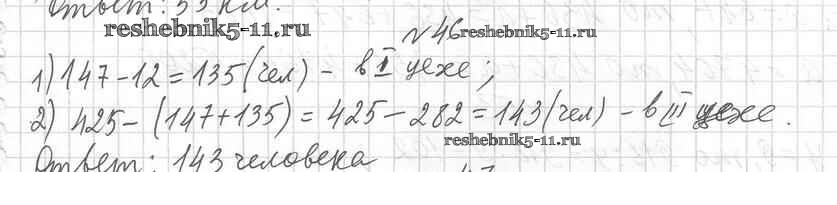 Ответ: 53 км.
reshebnik5-11.ru
№46 reshebnik5-11.ru
1) 147-12=135(чел) - в I цехе;
2) 425-(147+135)=425-282=143(чел) - в III цехе.
reshebnik5-11.ru
Ответ: 143 человека